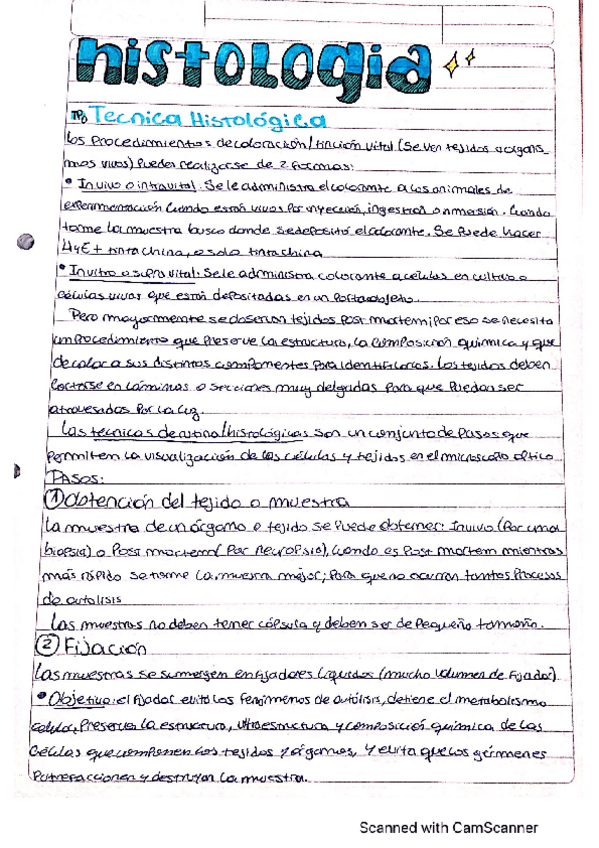 histologia
TP6 Tecnica Histológica
Los procedimientos de coloración/tinción vital (Se ven tejidos u organis_
mos vivos) pueden realizarse de 2 formas:
• In vivo o intravital: Se le administra el colorante a los animales de
experimentación cuando están vivos por inyección, ingestión o inmersión. Cuando
tome la muestra busco donde se depositó el colorante. Se puede hacer
H y E + tinta china, o solo tinta china
• Invitro o supravital: Se le administra colorante a células en cultivo o
células vivas que están depositadas en un portaobjeto.
Pero mayormente se observan tejidos post mortem; por eso se necesita
un procedimiento que preserve la estructura, la composición química y que
de color a sus distintos componentes para identificarlos. Los tejidos deben
cortarse en láminas o secciones muy delgadas para que puedan ser
atravesadas por la luz.
Las tecnicas de rutina/histológicas son un conjunto de pasos que
permiten la visualización de las células y tejidos en el microscopio óptico
PASOS:
① obtención del tejido o muestra
La muestra de un órgano o tejido se puede obtener: In vivo (Por una
biopsia) o Post mortem (Por necropsia), cuando es Post mortem mientras
más rápido se tome la muestra mejor; para que no ocurran tantos procesos
de autolisis
Las muestras no deben tener cápsula y deben ser de pequeño tamaño.
② Fijación
Las muestras se sumergen en fijadores líquidos (mucho volumen de fijador)
• Objetivo: el fijador evita los fenómenos de autólisis, detiene el metabolismo
celular, preserva la estructura, ultraestructura y composición química de las
células que componen los tejidos y órganos, y evita que los gérmenes
putrefaccionen y destruyan la muestra.
Scanned with CamScanner